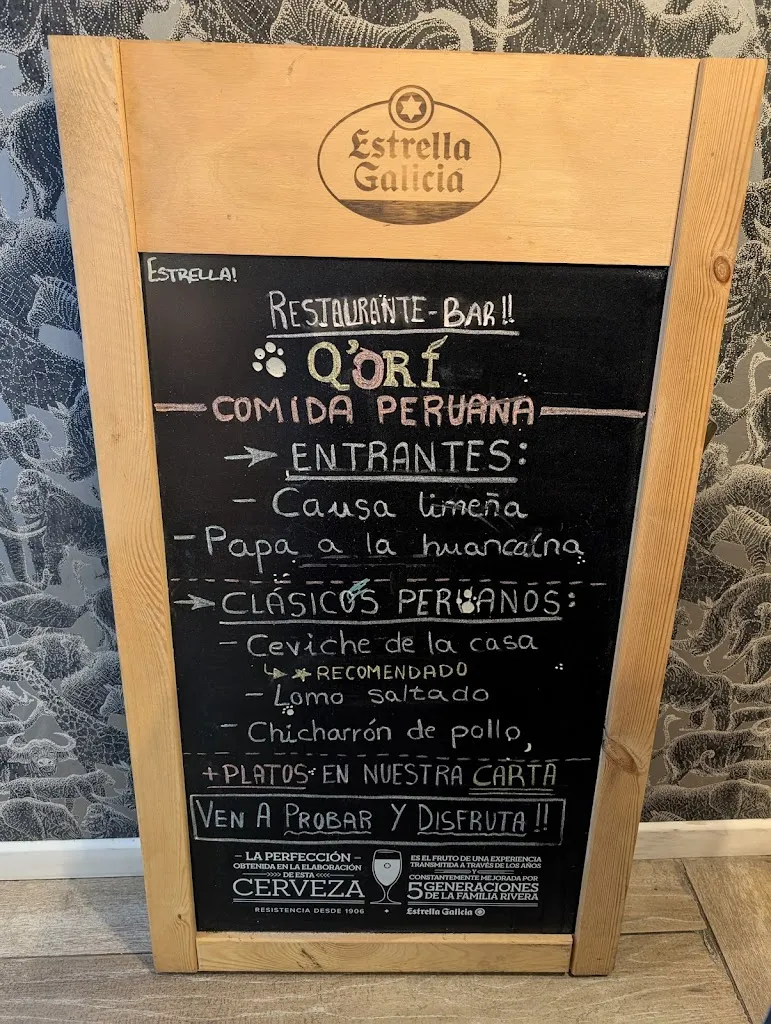 Estrella
Galicia
ESTRELLA!
RESTAURANTE-BAR!!
Q'ORÍ
COMIDA PERUANA
→ ENTRANTES:
- Causa limeña
- Papa a la huancaína
→ CLÁSICOS PERUANOS:
- Ceviche de la casa
↳ ★ RECOMENDADO
- Lomo saltado
- Chicharrón de pollo
+PLATOS EN NUESTRA CARTA
VEN A PROBAR Y DISFRUTA!!
- LA PERFECCIÓN -
OBTENIDA EN LA ELABORACIÓN
DE ESTA
CERVEZA
RESISTENCIA DESDE 1906
ES EL FRUTO DE UNA EXPERIENCIA
TRANSMITIDA A TRAVÉS DE LOS AÑOS
Y
CONSTANTEMENTE MEJORADA POR
5 GENERACIONES
DE LA FAMILIA RIVERA
Estrella Galicia